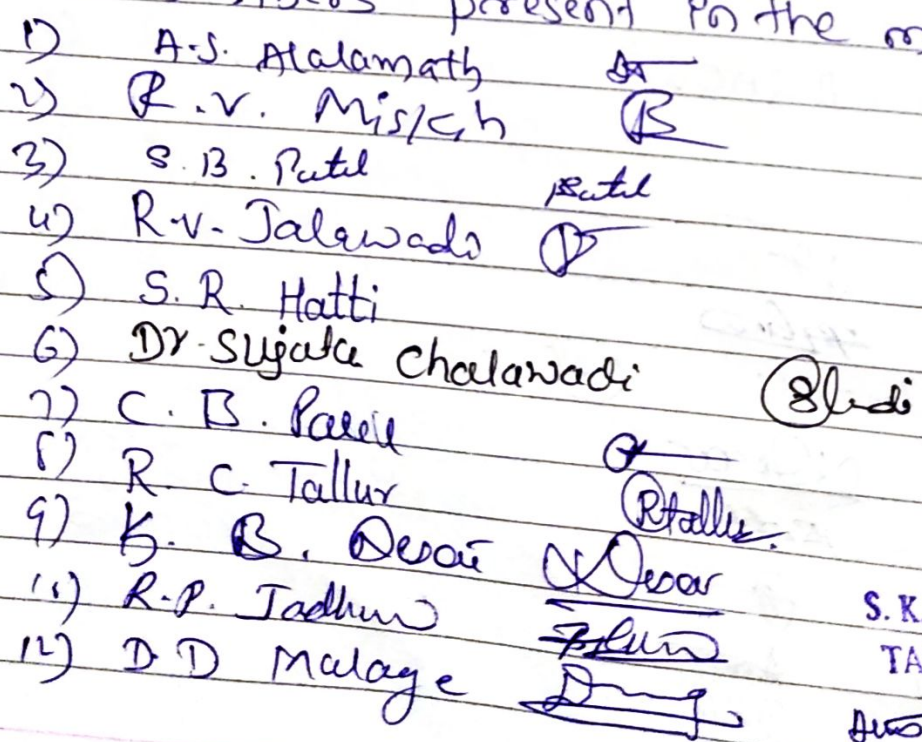 present in the
1) A.S. Alalamath
2) R.V. Miskin
3) S.B. Patil Patil
4) R.V. Jalawadi
5) S.R. Hatti
6) Dr. Sujata Chalawadi
7) C.B. Patil
8) R.C. Tallur RTallur.
9) K.B. Desai Desai
11) R.P. Jadhav
12) D D Malage
S.K
TA